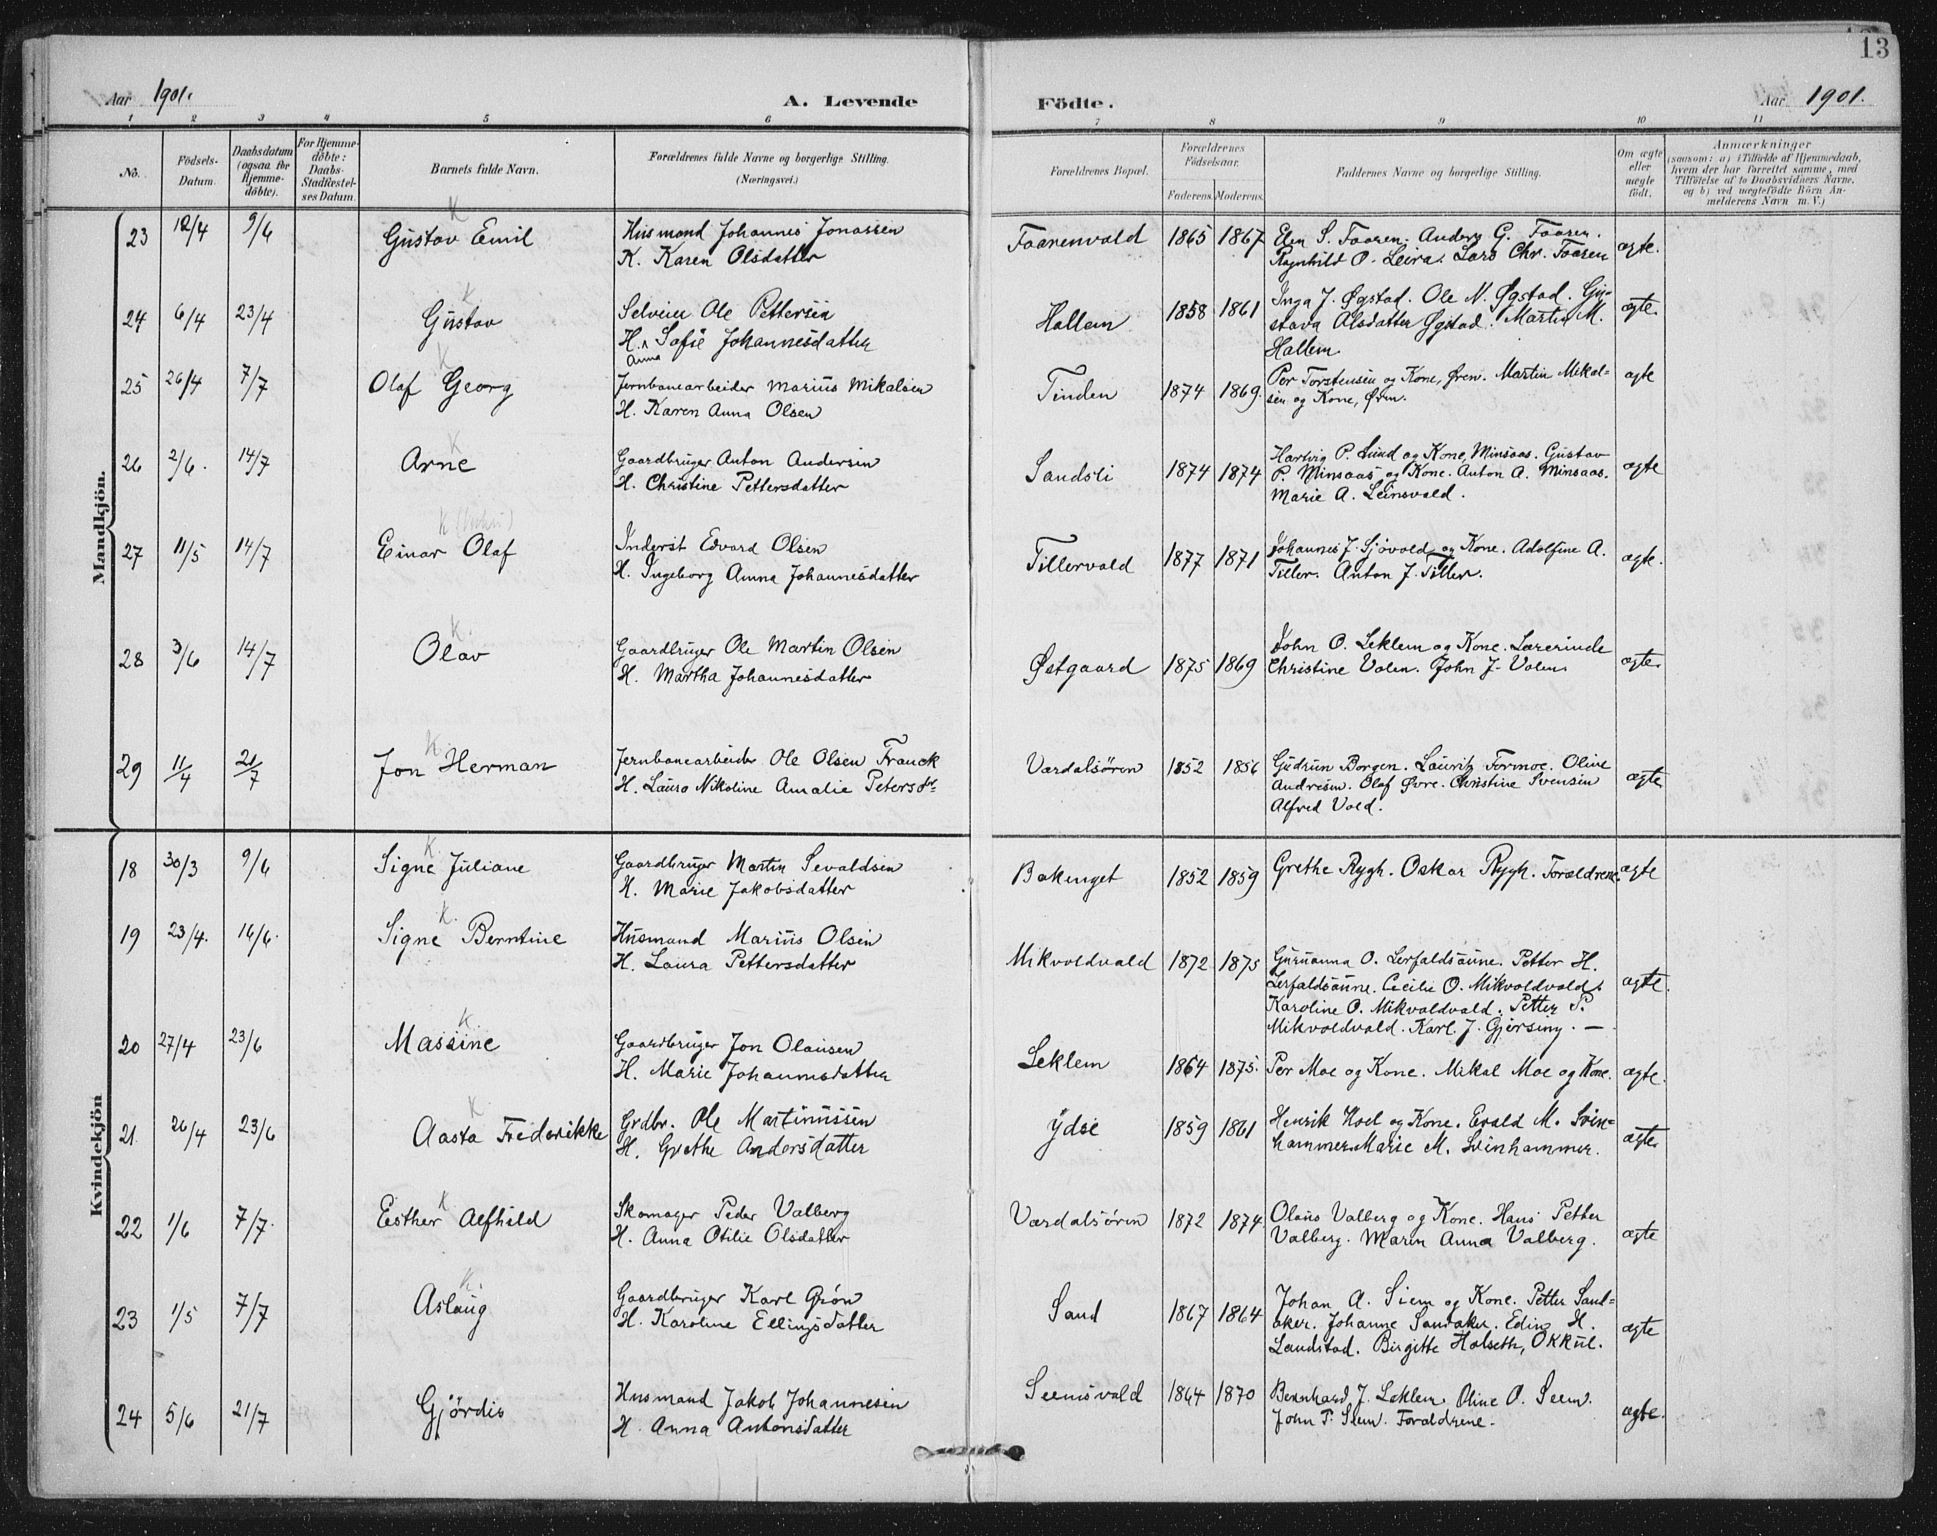 13
Aar 1901.
A. Levende
Födte.
Aar 1901.
1 2 3 4 5 6 7 8 9 10 11
No.
Födsels-
Datum.
Daabsdatum
(ogsaa for
Hjemme-
döbte).
For Hjemme-
döbte:
Daabs-
Stadfæstel-
ses Datum.
Barnets fulde Navn.
Forældrenes fulde Navne og borgerlige Stilling.
(Næringsvei.)
Forældrenes Bopæl.
Forældrenes
Födselsaar.
Faderens. Moderens.
Faddernes Navne og borgerlige Stilling.
Om ægte
eller
uægte
födt.
Anmærkninger
(saasom: a) i Tilfælde af Hjemmedaab,
hvem der har forrettet samme, med
Tilföielse af to Daabsvidners Navne,
og b) ved uegtefödte Börn An-
melderens Navn m. V.)
Mandkjön.
K
23 12/4 9/6 Gustav Emil Husmand Johannes Jonassen Faarenvald 1865 1867 Elen S. Faaren. Anders G. Faaren. ægte.
K. Karen Olsdatter Ragnhild O. Leira. Lars Chr. Faaren
K
24 6/4 23/4 Gustav Selveier Ole Pettersen Hallem 1858 1861 Inga J. Øgstad. Ole N. Øgstad. Gu-
H. Anna Sofie Johannesdatter stava Olsdatter Øgstad. Martin M. ægte.
Hallem.
K
25 26/4 7/7 Olaf Georg Jernbanearbeider Marius Mikalsen Tinden 1874 1869. Per Torstensen og Kone, Ören. Martin Mikal- ægte
H. Karen Anna Olsen sen og Kone, Ören.
K
26 2/6. 14/7 Arne Gaardbruger Anton Andersen Sandsli 1874 1874 Hartvig P. Lund og Kone, Minsaas. Gustav
H. Christine Pettersdatter P. Minsaas og Kone. Anton A. Minsaas. ægte
Marie A. Leinsvald.
K
27 11/5 14/7 Einar Olaf Inderst Edvard Olsen Tillervald 1877 1871 Johannes J. Sjövold og Kone. Adolfine A. ægte.
H. Ingeborg Anna Johannesdatter Tiller. Anton J. Tiller.
K.
28 3/6 14/7 Olav Gaardbruger Ole Martin Olsen Østgaard 1875 1869 John O. Leklem og Kone. Lærerinde
H. Martha Johannesdatter Christine Volen. John J. Volen. ægte.
K.
29 11/4 21/7 Jon Herman Jernbanearbeider Ole Olsen Franck Værdalsören 1852 1856 Gudrun Borgen. Lauritz Formoe. Oline
H. Laura Nikoline Amalie Petersdtr Andresen. Olaf Øvre. Christine Svensen ægte
Alfred Vold.
Kvindekjön
K.
18 30/3 9/6 Signe Juliane Gaardbruger Martin Sevaldsen Bakunget 1852 1859 Grethe Rygh. Oskar Rygh. Forældrene. ægte
H. Marie Jakobsdatter
K.
19 23/4. 16/6. Signe Berntine Husmand Marius Olsen Mikvoldvald 1872 1875 Guruanna O. Lerfaldsaune. Petter H.
H. Laura Pettersdatter Lerfaldsaune. Cecilie O. Mikvoldvald. ægte.
Karoline O. Mikvoldvald. Petter P.
Mikvoldvald. Karl J. Gjersing. —
K
20 27/4 23/6 Massine Gaardbruger Jon Olausen Leklem 1864 1875. Per Moe og Kone. Mikal Moe og Kone. ægte.
H. Marie Johannesdatter
K
21. 26/4 23/6 Aasta Frederikke Grdbr. Ole Martinussen Ydse 1859 1861 Henrik Hoel og Kone. Evald M. Svin-
H. Grethe Andersdatter hammer. Marie M. Svinhammer. ægte.
K
22 1/6 7/7. Esther Alfhild Skomager Peder Valberg Værdalsören 1872 1874. Olaus Valberg og Kone. Hans Petter
H. Anna Otilie Olsdatter Valberg. Maren Anna Valberg. ægte
K.
23 1/5 7/7 Aslaug Gaardbruger Karl Grön Sand 1867 1864 Johan A. Siem og Kone. Petter Sand-
H. Karoline Ellingsdatter aker. Johanne Sandaker. Edin H. ægte
Landstad. Birgitte Holseth, Okkul.
24 5/6 21/7 Gjördis Husmand Jakob Johannesen Seemsvald 1864 1870 Bernhard J. Leklem Oline O. Seem.
H. Anna Antonsdatter John P. Seem. Forældrene. ægte.